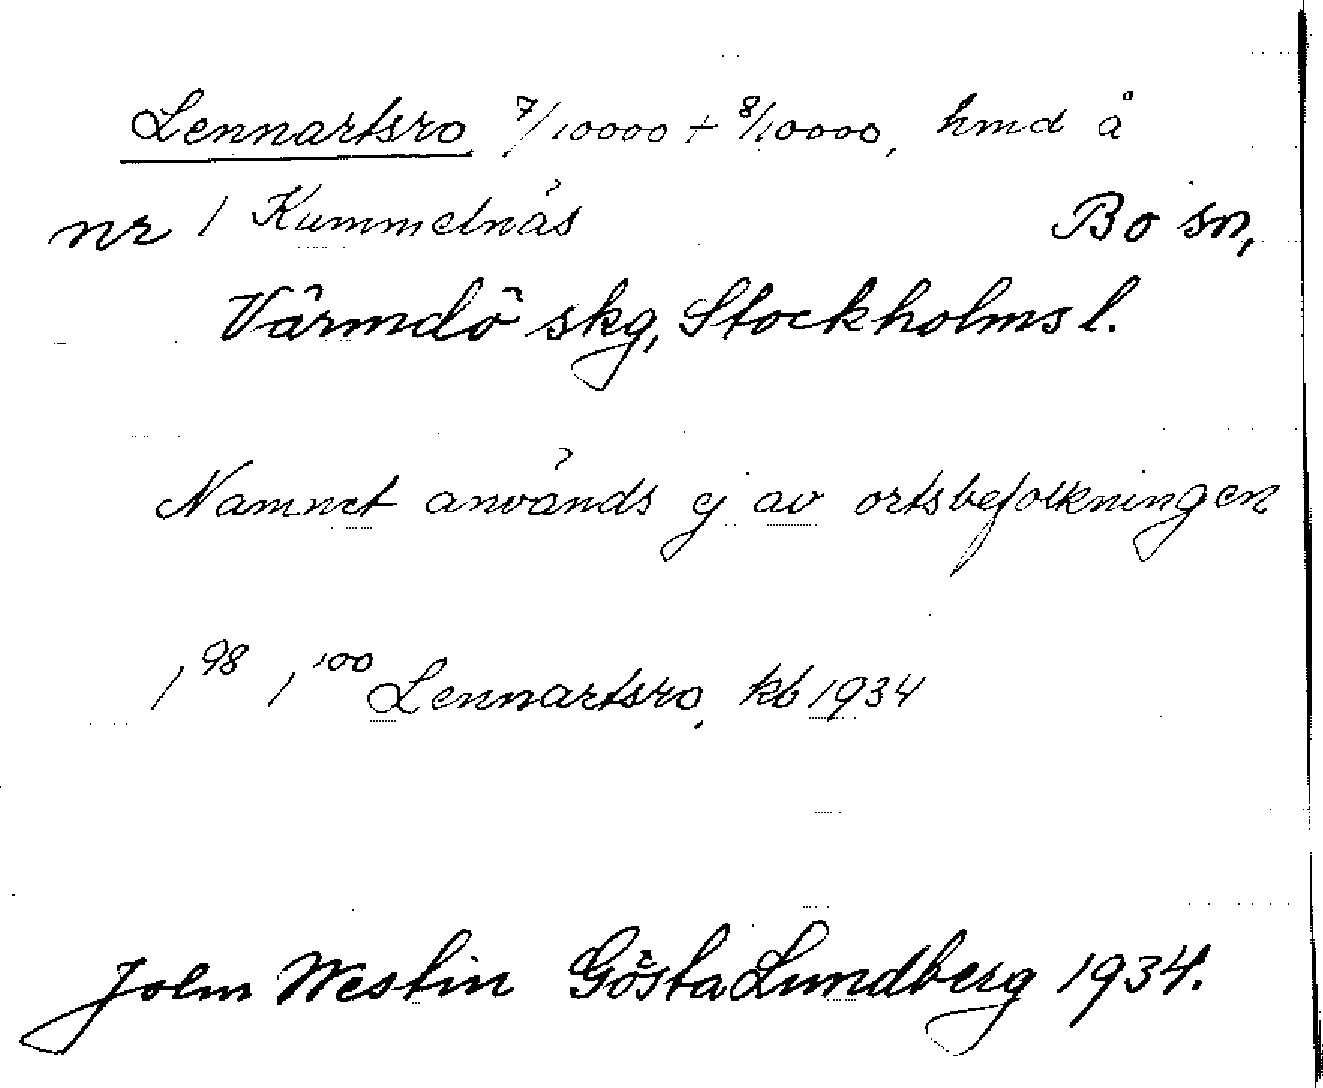 Lennartsro 7/10000 + 8/10000, hmd å
nr 1 Kummelnäs Bo sn,
Värmdö skg, Stockholms l.
Namnet används ej av ortsbefolkningen
1⁹⁸ 1¹⁰⁰ Lennartsro, kb 1934
John Westin Gösta Lundberg 1934.